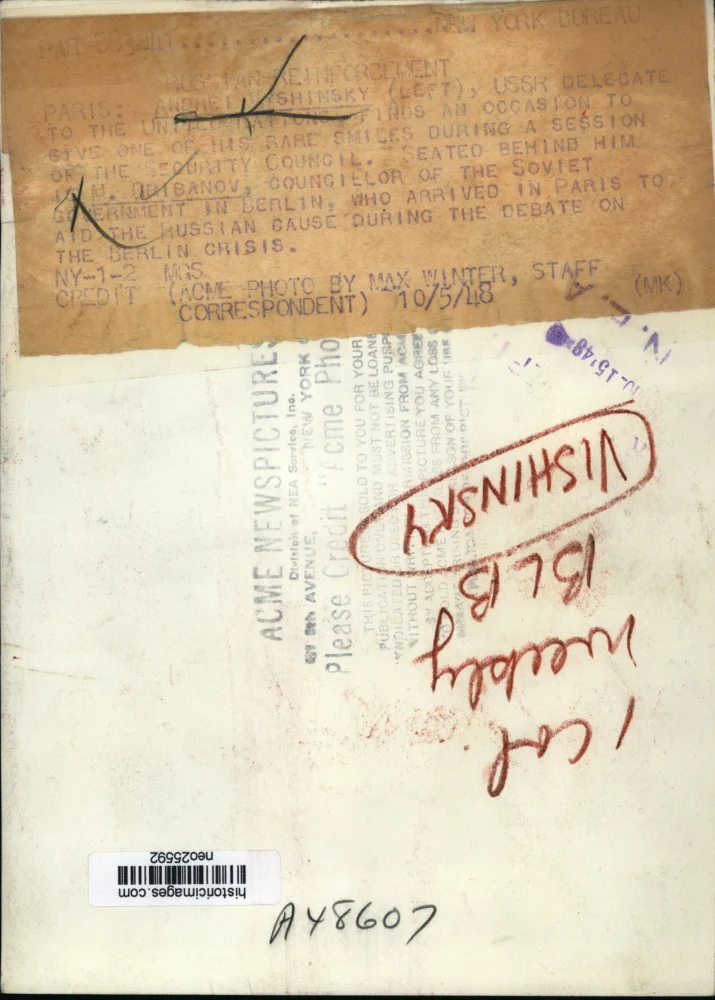 NEW YORK BUREAU
RUSSIAN REINFORCEMENT
PARIS: ANDREI VYSHINSKY (LEFT), USSR DELEGATE
TO THE UNITED NATIONS, FINDS AN OCCASION TO
GIVE ONE OF HIS RARE SMILES DURING A SESSION
OF THE SECURITY COUNCIL. SEATED BEHIND HIM
M. COUNCILLOR OF THE SOVIET
GOVERNMENT IN BERLIN, WHO ARRIVED IN PARIS TO
AID THE RUSSIAN CAUSE DURING THE DEBATE ON
THE BERLIN CRISIS.
NY-1-2 MGS
CREDIT (ACME PHOTO BY MAX WINTER, STAFF
CORRESPONDENT) 10/5/48 (MK)
N. E. A
15'48
ACME NEWSPICTURES
Division of NEA Service, Inc.
AVENUE, NEW YORK
Please Credit "Acme Pho
THIS PICTURE SOLD TO YOU FOR YOUR
PUBLICATION ONLY AND MUST NOT BE LOANE
ADVERTISING PURP
WITHOUT PERMISSION FROM ACM
PICTURE YOU AGREE
FROM ANY LOSS
VISHINSKY
BLB
1 col.
weekly
historicimages.com
neo25592
A48607